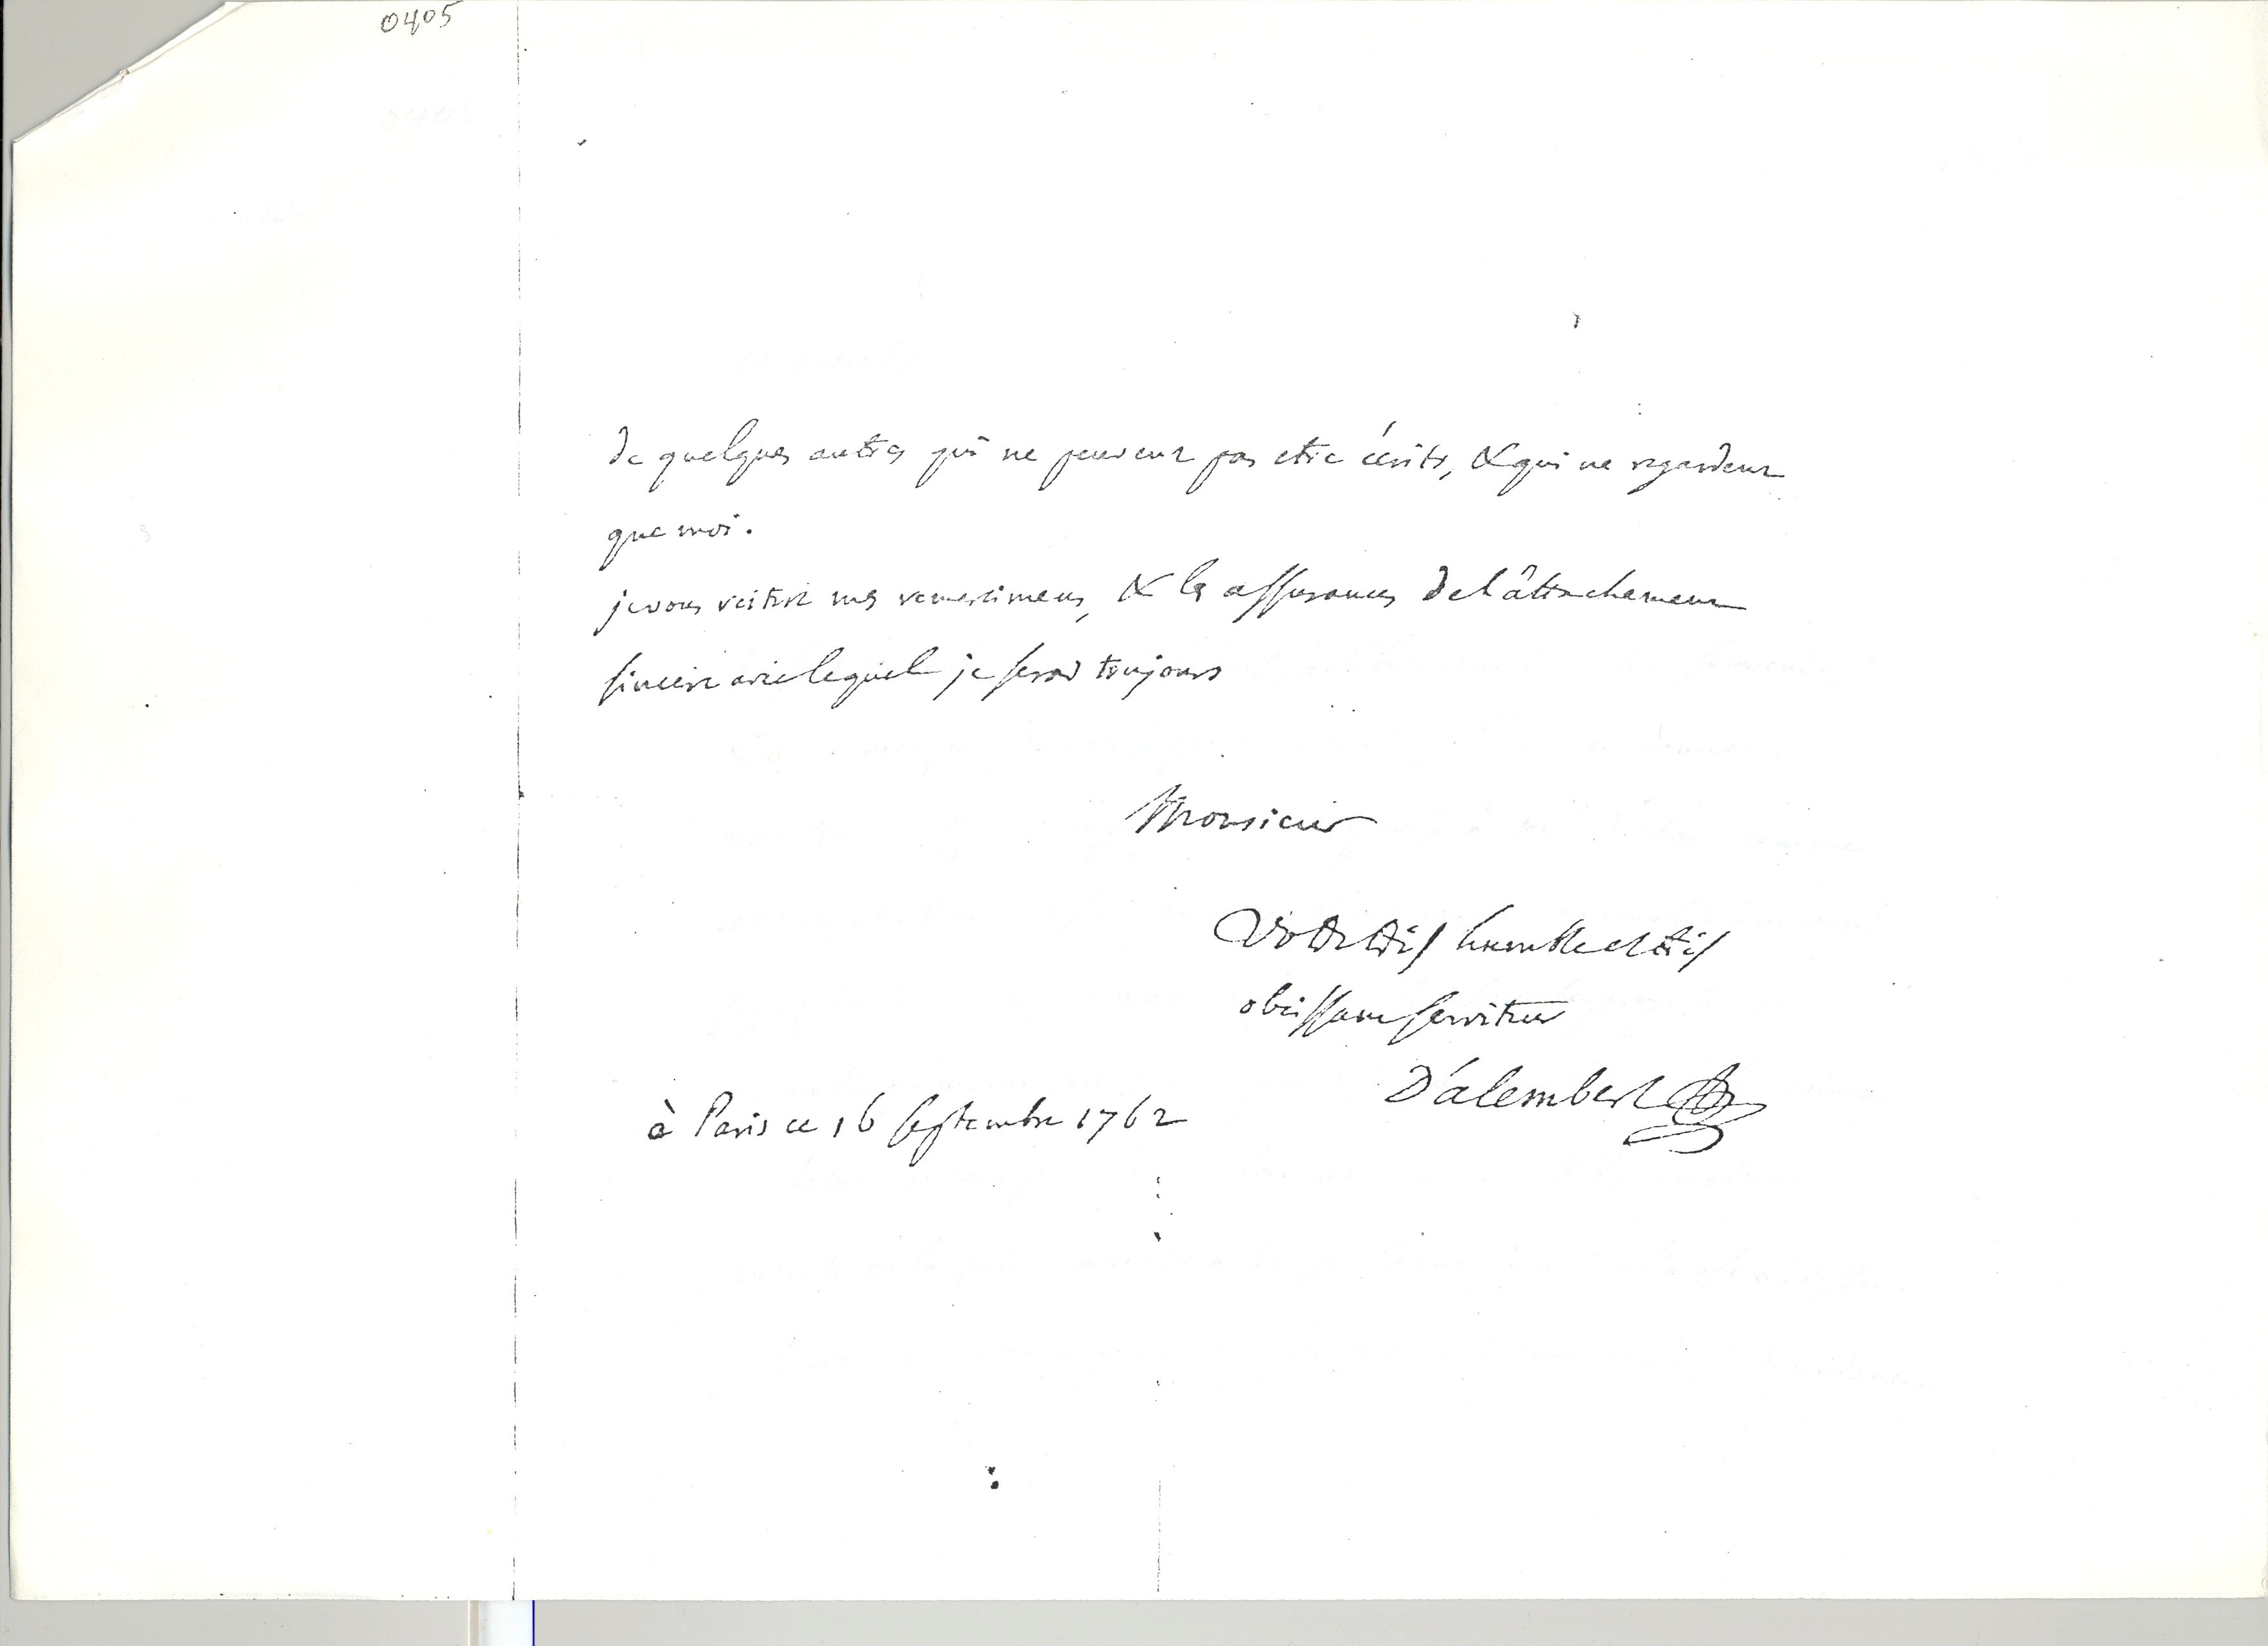 0405
de quelques autres qui ne peuvent pas etre écrits, & qui ne regardent
que moi.
je vous reitere mes remercimens, & les assurances de l'attachement
sincere avec lequel je serai toujours
Monsieur
Votre très humble et très
obeissant serviteur
D'alembert
à Paris ce 16 septembre 1762